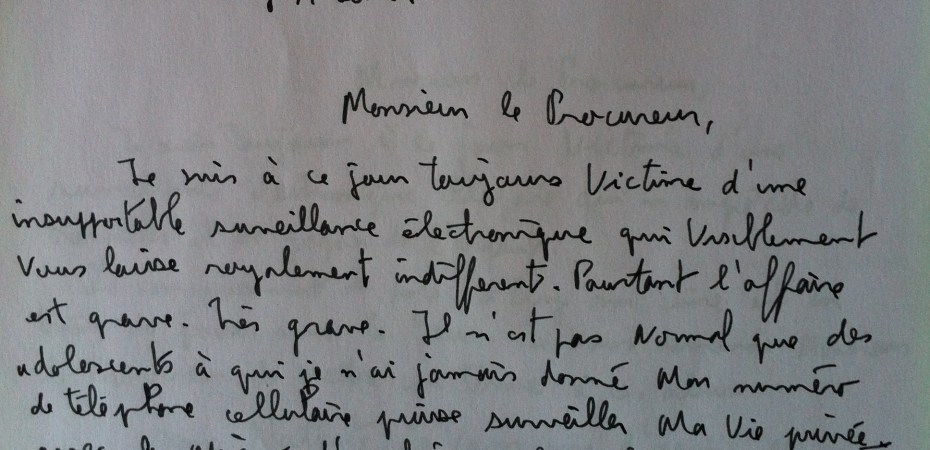 Monsieur le Procureur,
Je suis à ce jour toujours Victime d'une
insupportable surveillance électronique qui Visiblement
Vous laisse royalement indifférent. Pourtant l'affaire
est grave. Très grave. Il n'est pas Normal que des
adolescents à qui je n'ai jamais donné Mon numéro
de téléphone cellulaire puisse surveiller Ma Vie privée